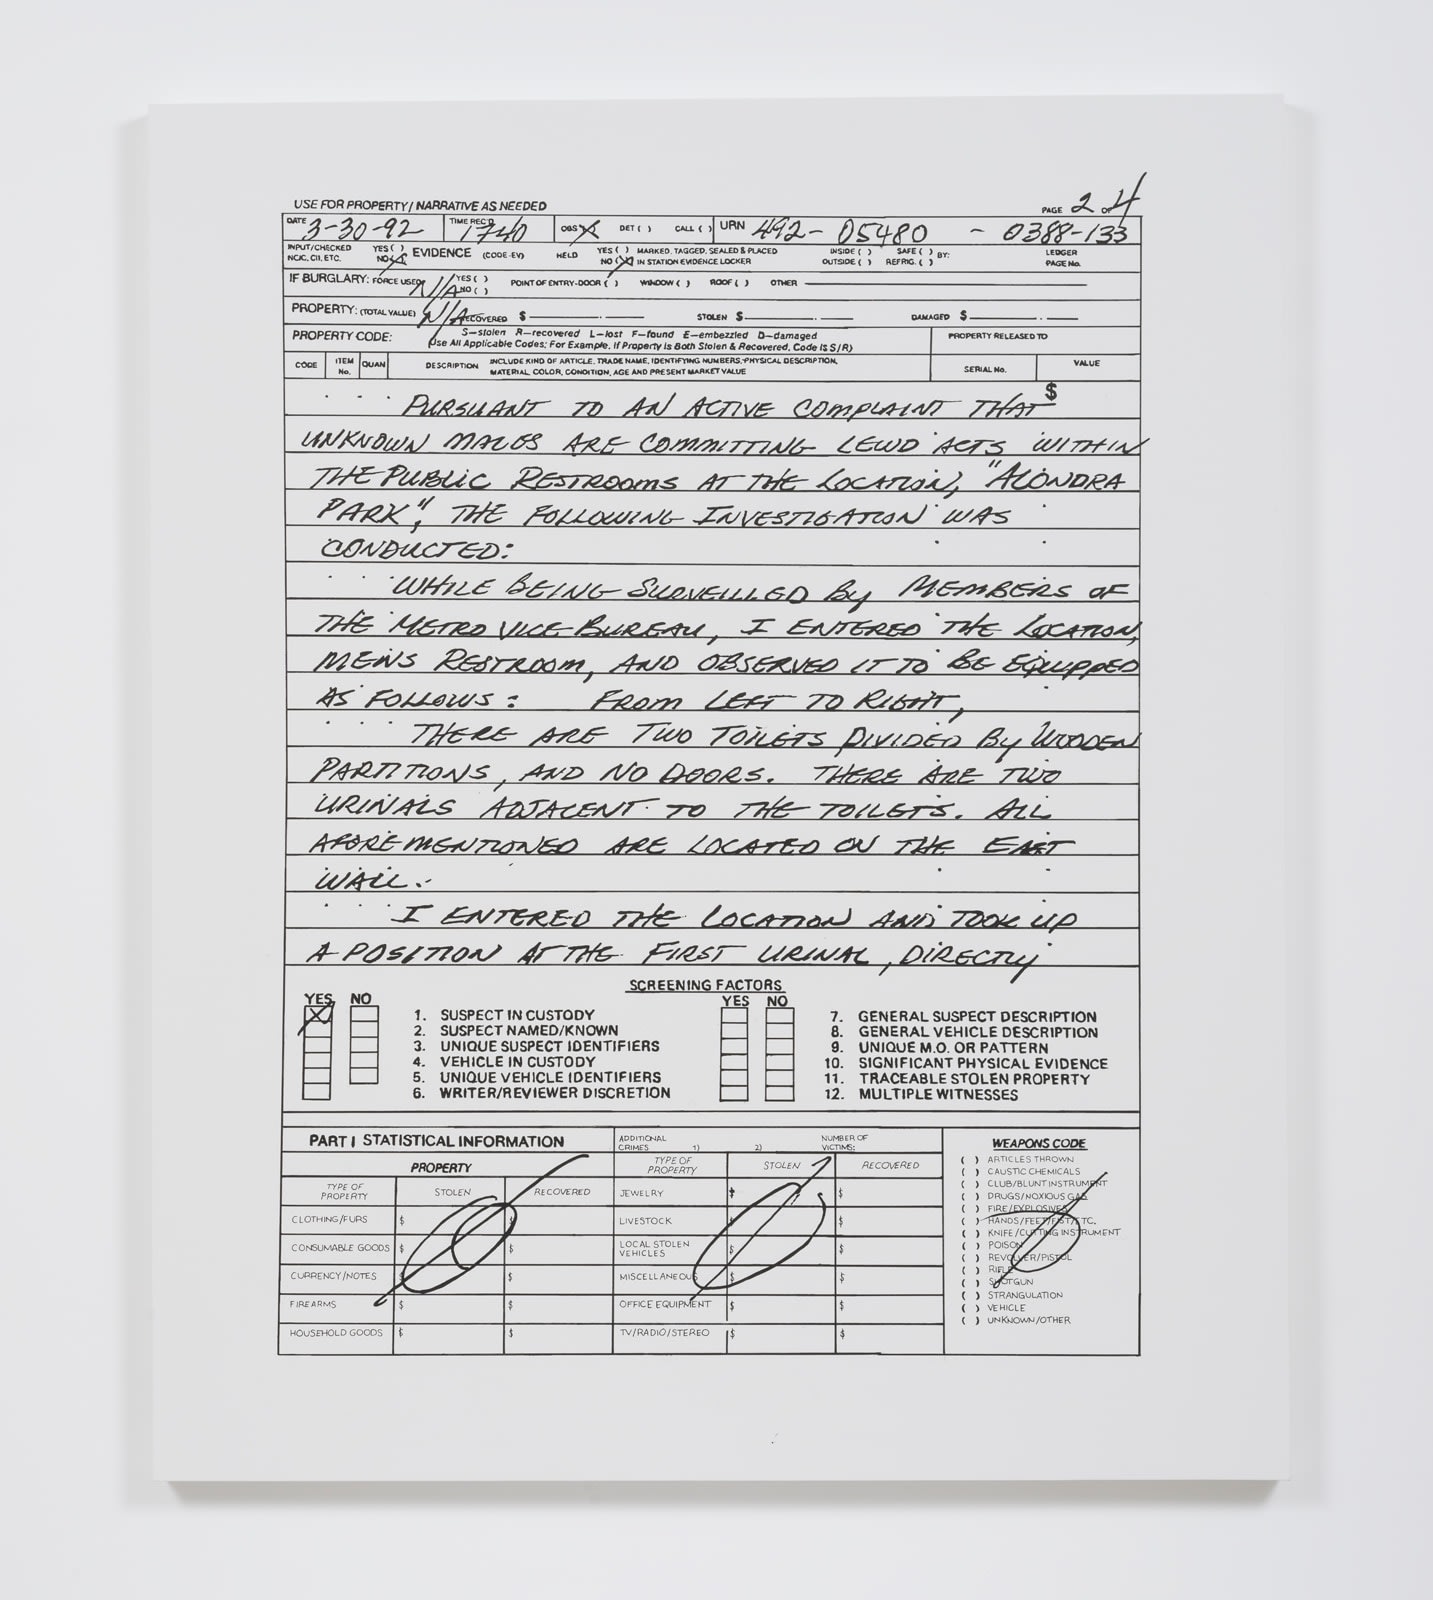 USE FOR PROPERTY/ NARRATIVE AS NEEDED
PAGE 2 OF 4
DATE 3-30-92 TIME REC'D 1740 OBS X DET ( ) CALL ( ) URN 492- 05480 - 0388-133
INPUT/CHECKED YES ( ) EVIDENCE (CODE-EV) HELD YES ( ) MARKED, TAGGED, SEALED & PLACED INSIDE ( ) SAFE ( ) BY: LEDGER
NCIC, CII, ETC. NO (X) NO (X) IN STATION EVIDENCE LOCKER OUTSIDE ( ) REFRIG. ( ) PAGE No.
IF BURGLARY: FORCE USED N/A YES ( ) NO ( ) POINT OF ENTRY-DOOR ( ) WINDOW ( ) ROOF ( ) OTHER
PROPERTY: (TOTAL VALUE) N/A RECOVERED $ STOLEN $ DAMAGED $
PROPERTY CODE: S-stolen R-recovered L-lost F-found E-embezzled D-damaged PROPERTY RELEASED TO
(Use All Applicable Codes; For Example, If Property is Both Stolen & Recovered, Code is S/R)
CODE ITEM No. QUAN DESCRIPTION INCLUDE KIND OF ARTICLE, TRADE NAME, IDENTIFYING NUMBERS, PHYSICAL DESCRIPTION, MATERIAL, COLOR, CONDITION, AGE AND PRESENT MARKET VALUE SERIAL No. VALUE
$
PURSUANT TO AN ACTIVE COMPLAINT THAT
UNKNOWN MALES ARE COMMITTING LEWD ACTS WITHIN
THE PUBLIC RESTROOMS AT THE LOCATION, "ALONDRA
PARK", THE FOLLOWING INVESTIGATION WAS
CONDUCTED:
WHILE BEING SURVEILLED By MEMBERS OF
THE METRO VICE BUREAU, I ENTERED THE LOCATION,
MENS RESTROOM, AND OBSERVED IT TO BE EQUIPPED
AS FOLLOWS: FROM LEFT TO RIGHT,
THERE ARE TWO TOILETS DIVIDED By WOODEN
PARTITIONS, AND NO DOORS. THERE ARE TWO
URINALS ADJACENT TO THE TOILETS. ALL
AFOREMENTIONED ARE LOCATED ON THE EAST
WALL.
I ENTERED THE LOCATION AND TOOK UP
A POSITION AT THE FIRST URINAL, DIRECTLY
SCREENING FACTORS
YES NO YES NO
X 1. SUSPECT IN CUSTODY 7. GENERAL SUSPECT DESCRIPTION
2. SUSPECT NAMED/KNOWN 8. GENERAL VEHICLE DESCRIPTION
3. UNIQUE SUSPECT IDENTIFIERS 9. UNIQUE M.O. OR PATTERN
4. VEHICLE IN CUSTODY 10. SIGNIFICANT PHYSICAL EVIDENCE
5. UNIQUE VEHICLE IDENTIFIERS 11. TRACEABLE STOLEN PROPERTY
6. WRITER/REVIEWER DISCRETION 12. MULTIPLE WITNESSES
PART I STATISTICAL INFORMATION ADDITIONAL CRIMES 1) 2) NUMBER OF VICTIMS: WEAPONS CODE
PROPERTY TYPE OF PROPERTY STOLEN RECOVERED
TYPE OF PROPERTY STOLEN RECOVERED JEWELRY $ $
CLOTHING/FURS $ $ LIVESTOCK $
CONSUMABLE GOODS $ $ LOCAL STOLEN VEHICLES $ $
CURRENCY/NOTES $ $ MISCELLANEOUS $ $
FIREARMS $ $ OFFICE EQUIPMENT $ $
HOUSEHOLD GOODS $ $ TV/RADIO/STEREO $ $
( ) ARTICLES THROWN
( ) CAUSTIC CHEMICALS
( ) CLUB/BLUNT INSTRUMENT
( ) DRUGS/NOXIOUS GAS
( ) FIRE/EXPLOSIVES
( ) HANDS/FEET/FIST/ETC.
( ) KNIFE/CUTTING INSTRUMENT
( ) POISON
( ) REVOLVER/PISTOL
( ) RIFLE
( ) SHOTGUN
( ) STRANGULATION
( ) VEHICLE
( ) UNKNOWN/OTHER